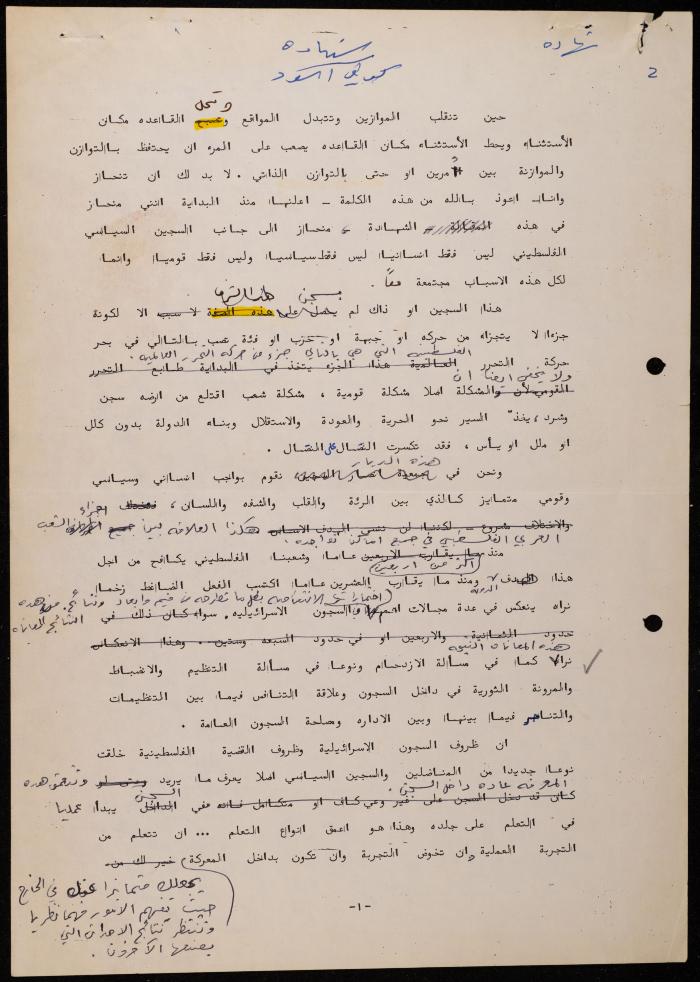 شهادة
2
شهادة
وتحل
حين تنقلب الموازين وتتبدل المواقع وتصبح القاعده مكان
الأستثناء ويحط الأستثناء مكان القاعده يصعب على المرء ان يحتفظ بالتوازن
والموازنة بين أمرين او حتى بالتوازن الذاتي . لا بد لك ان تنحاز
وانا_ اعوذ بالله من هذه الكلمة _ اعلنها منذ البداية انني منحاز
في هذه المقالة الشهادة منحاز الى جانب السجين السياسي
الفلسطيني ليس فقط انسانيا ليس فقط سياسيا وليس فقط قوميا وانما
لكل هذه الاسباب مجتمعة معاً .
هذا السجين او ذاك لم يحمل على هذه الصفة لا سبب الا لكونة
جزءا لا يتجزاء من حركه او جبهة او حزب او فئة تصب بالتالي في بحر
الفلسطينيه التي هي بالتالي جزء من حركة التحرر العالميه .
حركة التحرر العالمية هذا الجزء يتخذ في البداية طابع التحرر
ولا يخفى ايضا ان
القومي لأن المشكلة اصلا مشكلة قومية ، مشكلة شعب اقتلع من ارضه سجن
وشرد ، يغذّ السير نحو الحرية والعودة والاستقلال وبناء الدولة بدون كلل
او ملل او يأس ، فقد تكسرت النصال على النصال .
هذه الديار
ونحن في نقوم بواجب انساني وسياسي
وقومي متمايز كالذي بين الرئة والقلب والشفه واللسان ، اجزاء
هكذا العلاقه بين جميع الشعب
العربي الفلسطيني في جميع اماكن تواجده .
منذ ما يقارب الاربعين عاما وشعبنا الفلسطيني يكافح من اجل
اكثر من اربعين
هذا الهدف ومنذ ما يقارب العشرين عاما اكتسب الفعل الضاغط زخما
نراه ينعكس في عدة مجالات السجون الاسرائيليه . سواء كان ذلك في
حدود الثمانية والاربعين او في حدود السبعه وستين .. وهذا الانعكاس
نراه كما في مسألة الازدحام ونوعا في مسألة التنظيم والانضباط
والمرونة الثورية في داخل السجون وعلاقة التنافس فيما بين التنظيمات
والتناحر فيما بينها وبين الاداره ومصلحة السجون العامة .
ان ظروف السجون الاسرائيلية وظروف القضية الفلسطينية خلقت
نوعا جديدا من المناضلين والسجين السياسي اصلا يعرف ما يريد وتتعمق هذه
المعرفه عاده داخل السجن .
كان قد دخل السجن على غير وعي كاف او متكامل فانه ففي الداخل يبدأ عمليا
السجن
في التعلم على جلده وهذا هو اعمق انواع التعلم ... ان تتعلم من
التجربة العملية وان تخوض التجربة وان تكون بداخل المعركة خير لك من
يجعلك متمايزا عنك في الخارج
حيث تفهم الامور فهما نظريا
وتنتظر نتائج الاحداث التي
يصنعها الآخرون .
-١-